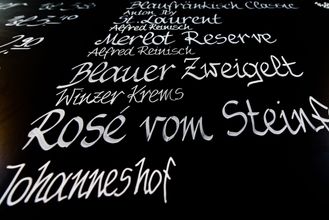 Blaufränkisch Classic
Anton Iby
St. Laurent
Alfred Reinisch
2,90
Merlot Reserve
Alfred Reinisch
Blauer Zweigelt
Winzer Krems
Rosé vom Steinf
Johanneshof